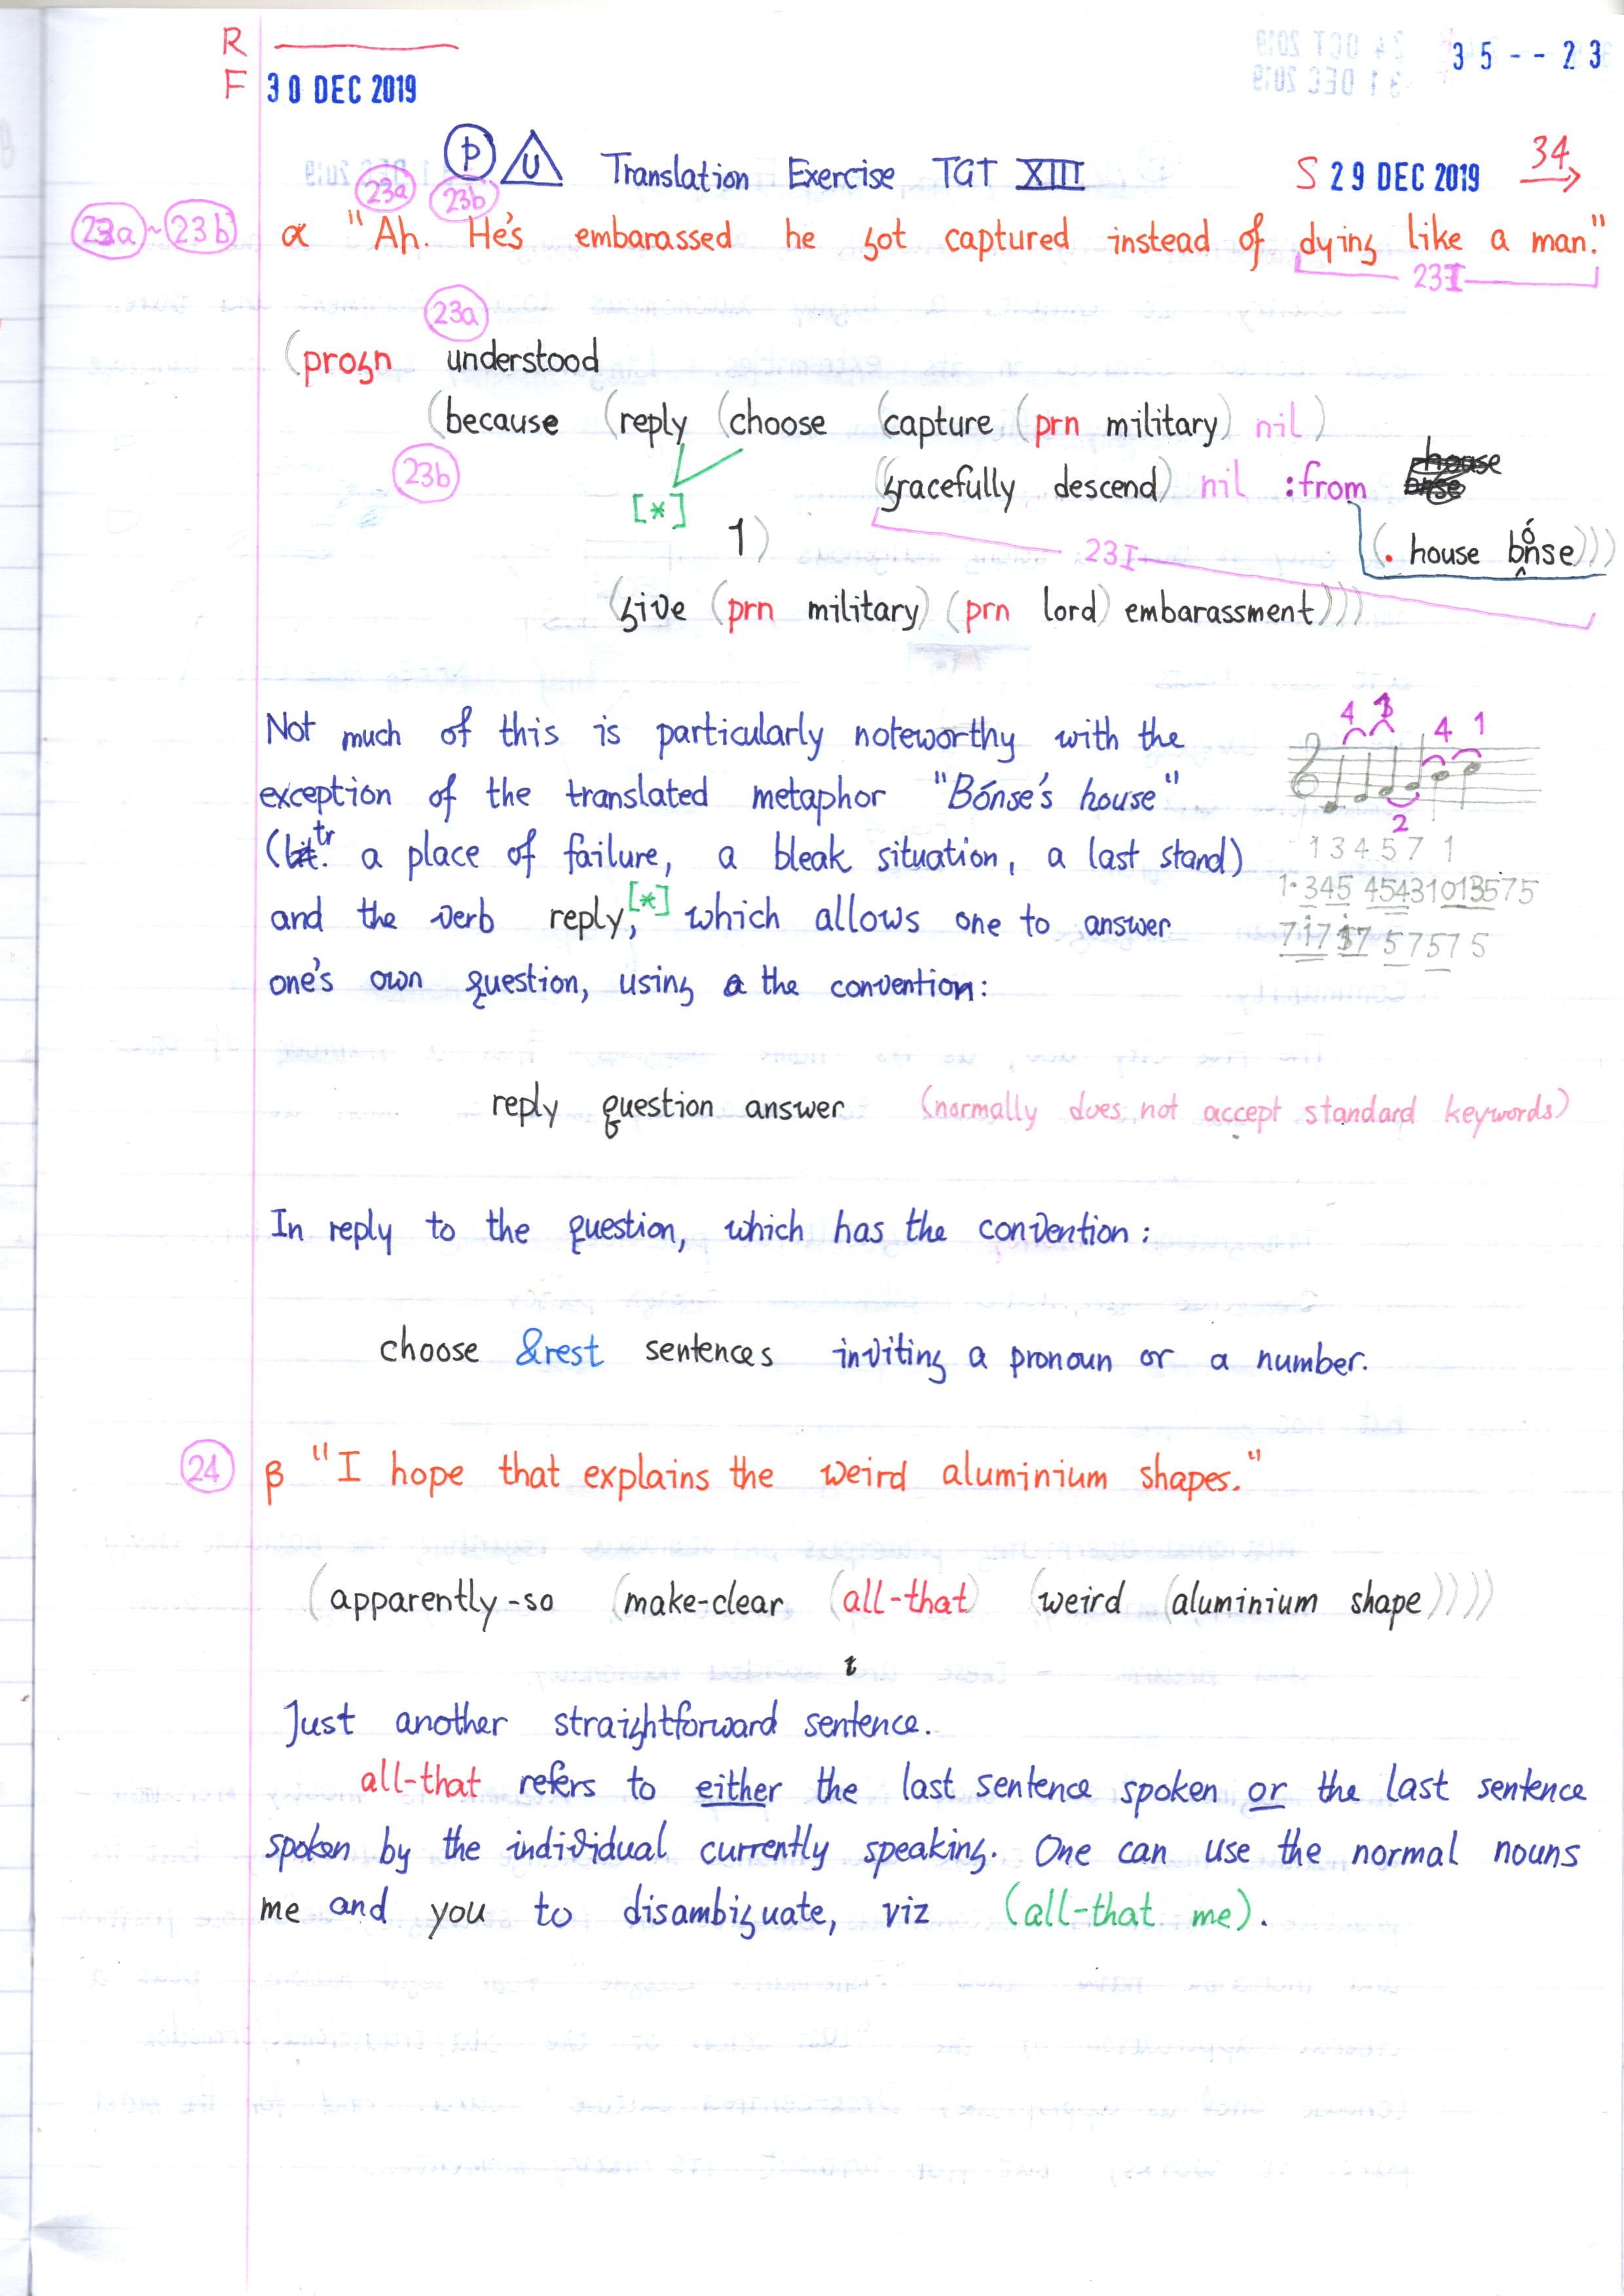 R
F 30 DEC 2019
35--23
24 OCT 2019
31 DEC 2019
þ U Translation Exercise TGT XIII S 29 DEC 2019 34
23a 23b
23a ~ 23b α "Ah. He's embarassed he got captured instead of dying like a man."
23I
23a
(progn understood
(because (reply (choose (capture (prn military) nil)
23b (gracefully descend) nil :from
[*]
1) 23I (. house bónse)))
(give (prn military) (prn lord) embarassment)))
Not much of this is particularly noteworthy with the
exception of the translated metaphor "Bónse's house"
(tr. a place of failure, a bleak situation, a last stand)
and the verb reply,[*] which allows one to answer
one's own question, using the convention:
4 3 4 1
2
1 3 4 5 7 1
1·345 45431013575
reply question answer (normally does not accept standard keywords)
In reply to the question, which has the convention:
choose &rest sentences inviting a pronoun or a number.
24 β "I hope that explains the weird aluminium shapes."
(apparently-so (make-clear (all-that) (weird (aluminium shape))))
Just another straightforward sentence.
all-that refers to either the last sentence spoken or the last sentence
spoken by the individual currently speaking. One can use the normal nouns
me and you to disambiguate, viz (all-that me).